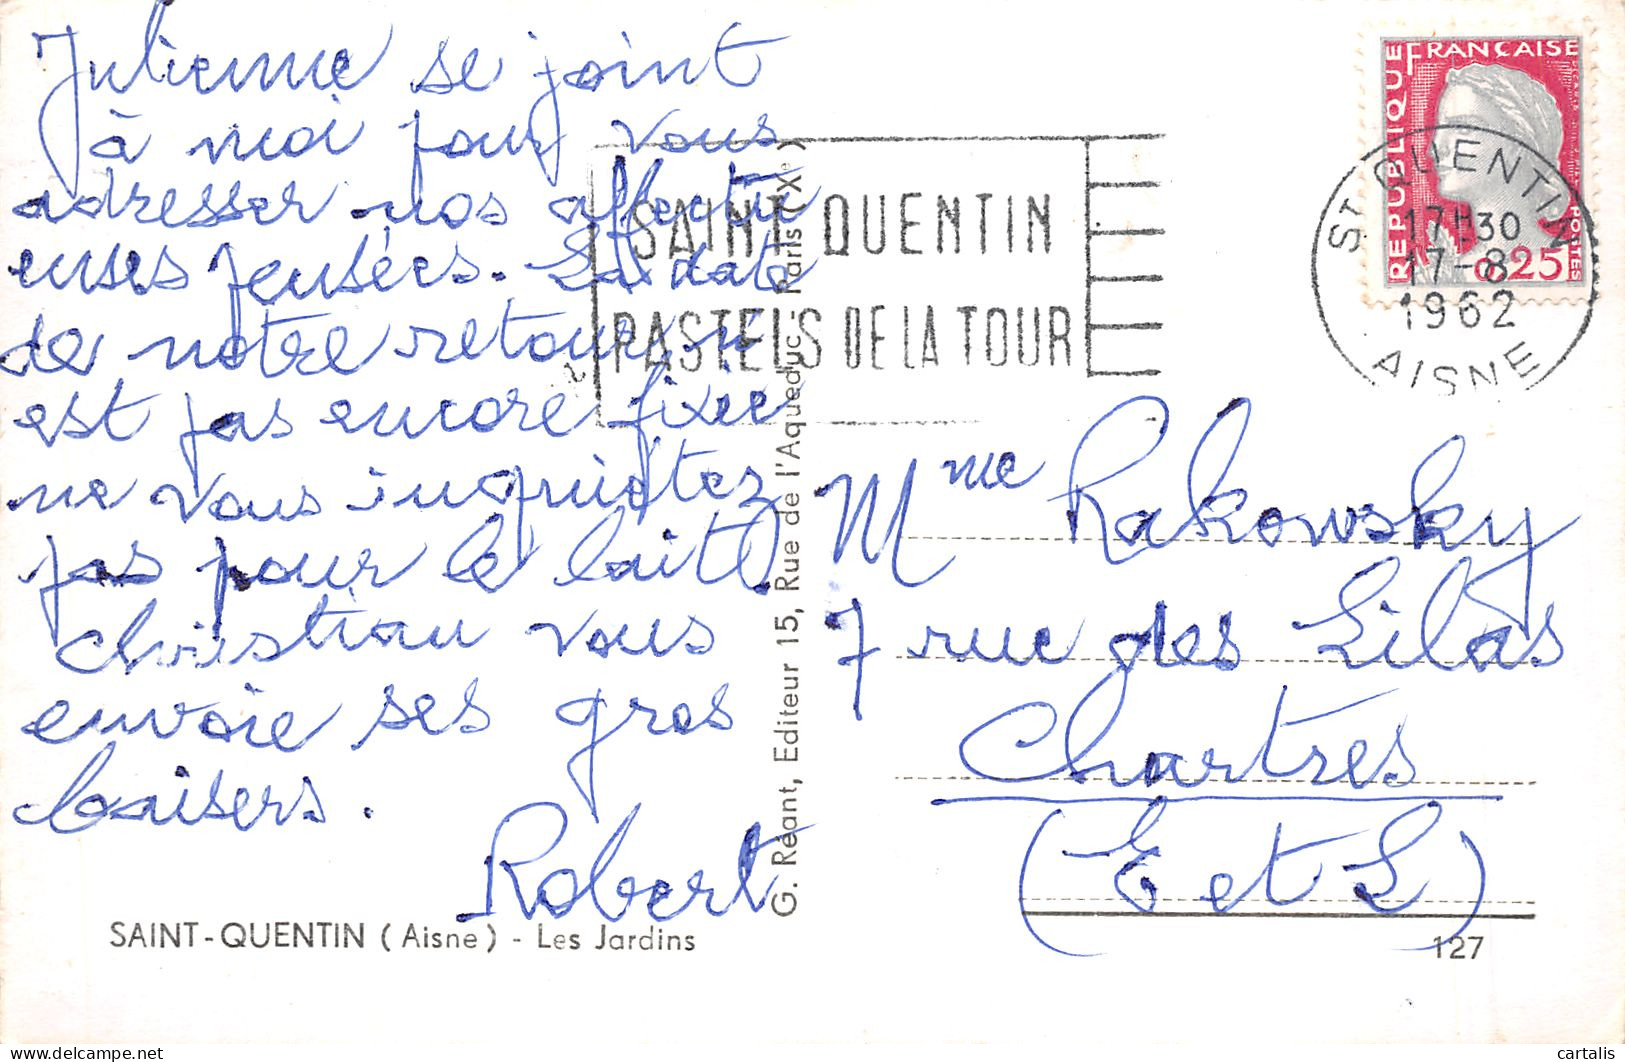 Julienne se joint
à moi pour vous
adresser nos affectu
euses pensées. La date
de notre retour n'
est pas encore fixée
ne vous inquiétez
pas pour le lait.
Christian vous
envoie ses gros
baisers.
Robert
SAINT-QUENTIN (Aisne) - Les Jardins
G. Réant, Editeur 15, Rue de l'Aqueduc - Paris (Xe)
SAINT QUENTIN
PASTELS DE LA TOUR
REPUBLIQUE FRANÇAISE
POSTES
0,25
ST QUENTIN
17H30
17-8
1962
AISNE
Mme Rakowsky
7 rue des Lilas
Chartres
(E et L)
127
cartalis
delcampe.net